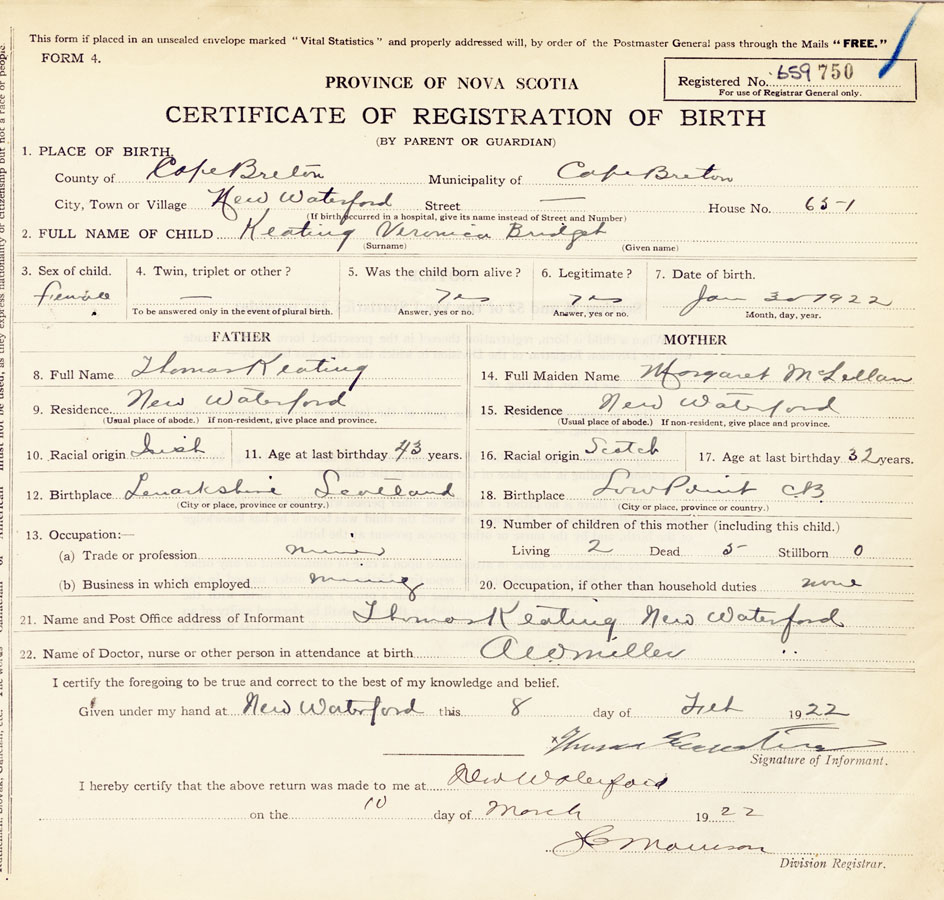 This form if placed in an unsealed envelope marked "Vital Statistics" and properly addressed will, by order of the Postmaster General pass through the Mails "FREE."
FORM 4.
PROVINCE OF NOVA SCOTIA
Registered No. 659750
For use of Registrar General only.
CERTIFICATE OF REGISTRATION OF BIRTH
(BY PARENT OR GUARDIAN)
1. PLACE OF BIRTH,
County of Cape Breton Municipality of Cape Breton
City, Town or Village New Waterford Street — House No. 65-1
(If birth occurred in a hospital, give its name instead of Street and Number)
2. FULL NAME OF CHILD Keating Veronica Bridget
(Surname) (Given name)
3. Sex of child. 4. Twin, triplet or other? 5. Was the child born alive? 6. Legitimate? 7. Date of birth.
female — yes yes Jan 30 1922
To be answered only in the event of plural birth. Answer, yes or no. Answer, yes or no. Month, day, year.
FATHER MOTHER
8. Full Name Thomas Keating 14. Full Maiden Name Margaret McLellan
9. Residence New Waterford 15. Residence New Waterford
(Usual place of abode.) If non-resident, give place and province. (Usual place of abode.) If non-resident, give place and province.
10. Racial origin Irish 11. Age at last birthday 43 years. 16. Racial origin Scotch 17. Age at last birthday 32 years.
12. Birthplace Lenarkshire Scotland 18. Birthplace Low Point CB
(City or place, province or country.) (City or place, province or country.)
13. Occupation:— 19. Number of children of this mother (including this child.)
(a) Trade or profession miner Living 2 Dead 5 Stillborn 0
(b) Business in which employed mining 20. Occupation, if other than household duties none
21. Name and Post Office address of Informant Thomas Keating New Waterford
22. Name of Doctor, nurse or other person in attendance at birth Miller
I certify the foregoing to be true and correct to the best of my knowledge and belief.
Given under my hand at New Waterford this 8 day of Feb 1922
Thomas Keating
Signature of Informant.
I hereby certify that the above return was made to me at New Waterford
on the 10 day of March 1922
Morrison
Division Registrar.